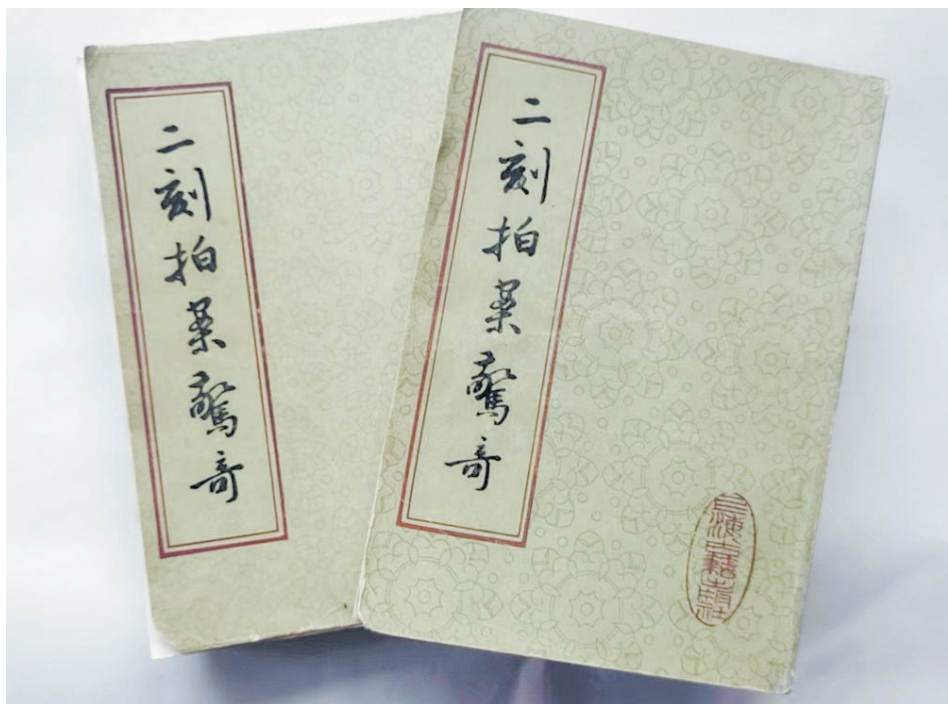 二刻拍案驚奇
二刻拍案驚奇
上海古籍出版社